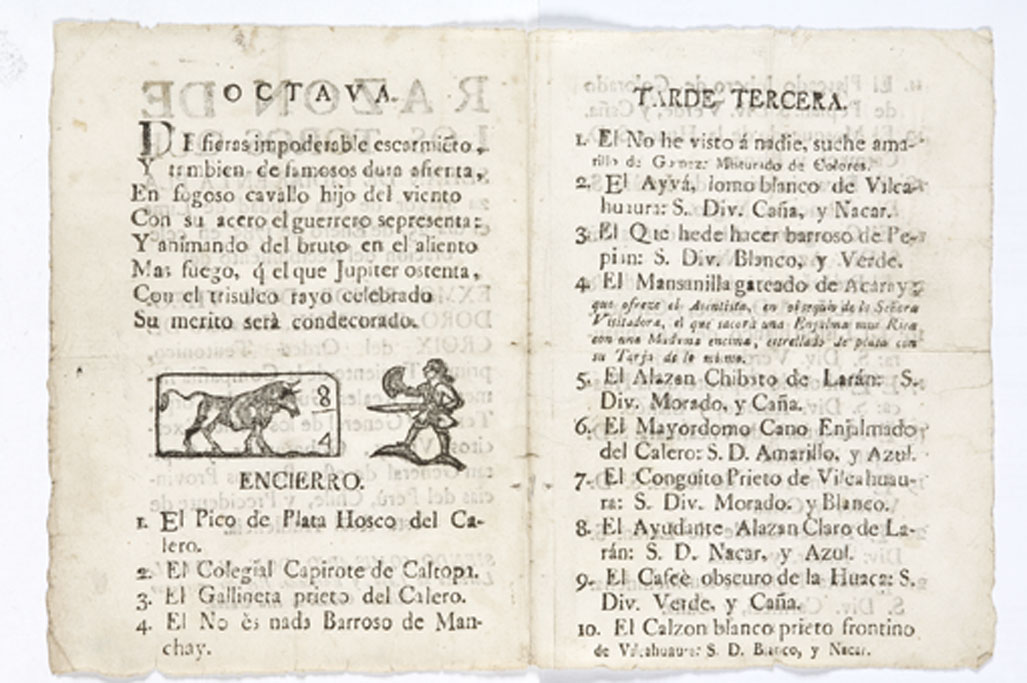 OCTAVA.
DE fieras impoderable escarmieto,
Y tambien de famosos dura afrenta,
En fogoso cavallo hijo del viento
Con su acero el guerrero sepresenta:
Y animando del bruto en el aliento
Mas fuego, q̃ el que Jupiter ostenta,
Con el trisulco rayo celebrado
Su merito será condecorado.
8
4
ENCIERRO.
1. El Pico de Plata Hosco del Ca-
lero.
2. El Colegial Capirote de Caltopa.
3. El Gallineta prieto del Calero.
4. El No ès nada Barroso de Man-
chay.
TARDE TERCERA.
1. El No he visto á nadie, suche ama-
rillo de Gomez: Misturado de Colores.
2. El Ayvá, lomo blanco de Vilca-
huaura: S. Div. Caña, y Nacar.
3. El Que hede hacer barroso de Pe-
pian: S. Div. Blanco, y Verde.
4. El Mansanilla gateado de Acaray:
que ofreze el Asentista, en obsequio de la Señora
Visitadora, el que sacará una Enjalma muy Rica
con una Madama encima, estrellado de plata con
su Tarja de lo mismo.
5. El Alazan Chibato de Larán: S.
Div. Morado, y Caña.
6. El Mayordomo Cano Enjalmado
del Calero: S. D. Amarillo, y Azul.
7. El Conguito Prieto de Vilcahuau-
ra: S. Div. Morado, y Blanco.
8. El Ayudante Alazan Claro de La-
rán: S. D. Nacar, y Azul.
9. El Cafeè obscuro de la Huaca: S.
Div. Verde, y Caña.
10. El Calzon blanco prieto frontino
de Vilcahuaura: S. D. Blanco, y Nacar.